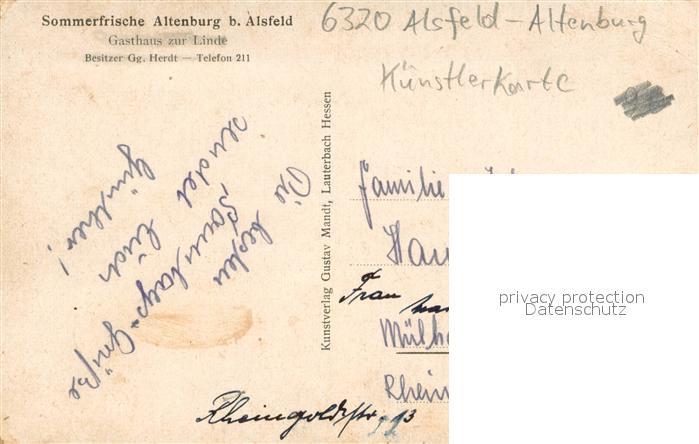 Sommerfrische Altenburg b. Alsfeld
Gasthaus zur Linde
Besitzer Gg. Herdt — Telefon 211
6320 Alsfeld-Altenburg
Künstlerkarte
Kunstverlag Gustav Mandt, Lauterbach Hessen
Die besten
Sonntags-Grüße
sendet Euch
Günther!
Familie
Hau
Frau
Mülh
Rhein
Rheingoldstr. 13
privacy protection
Datenschutz